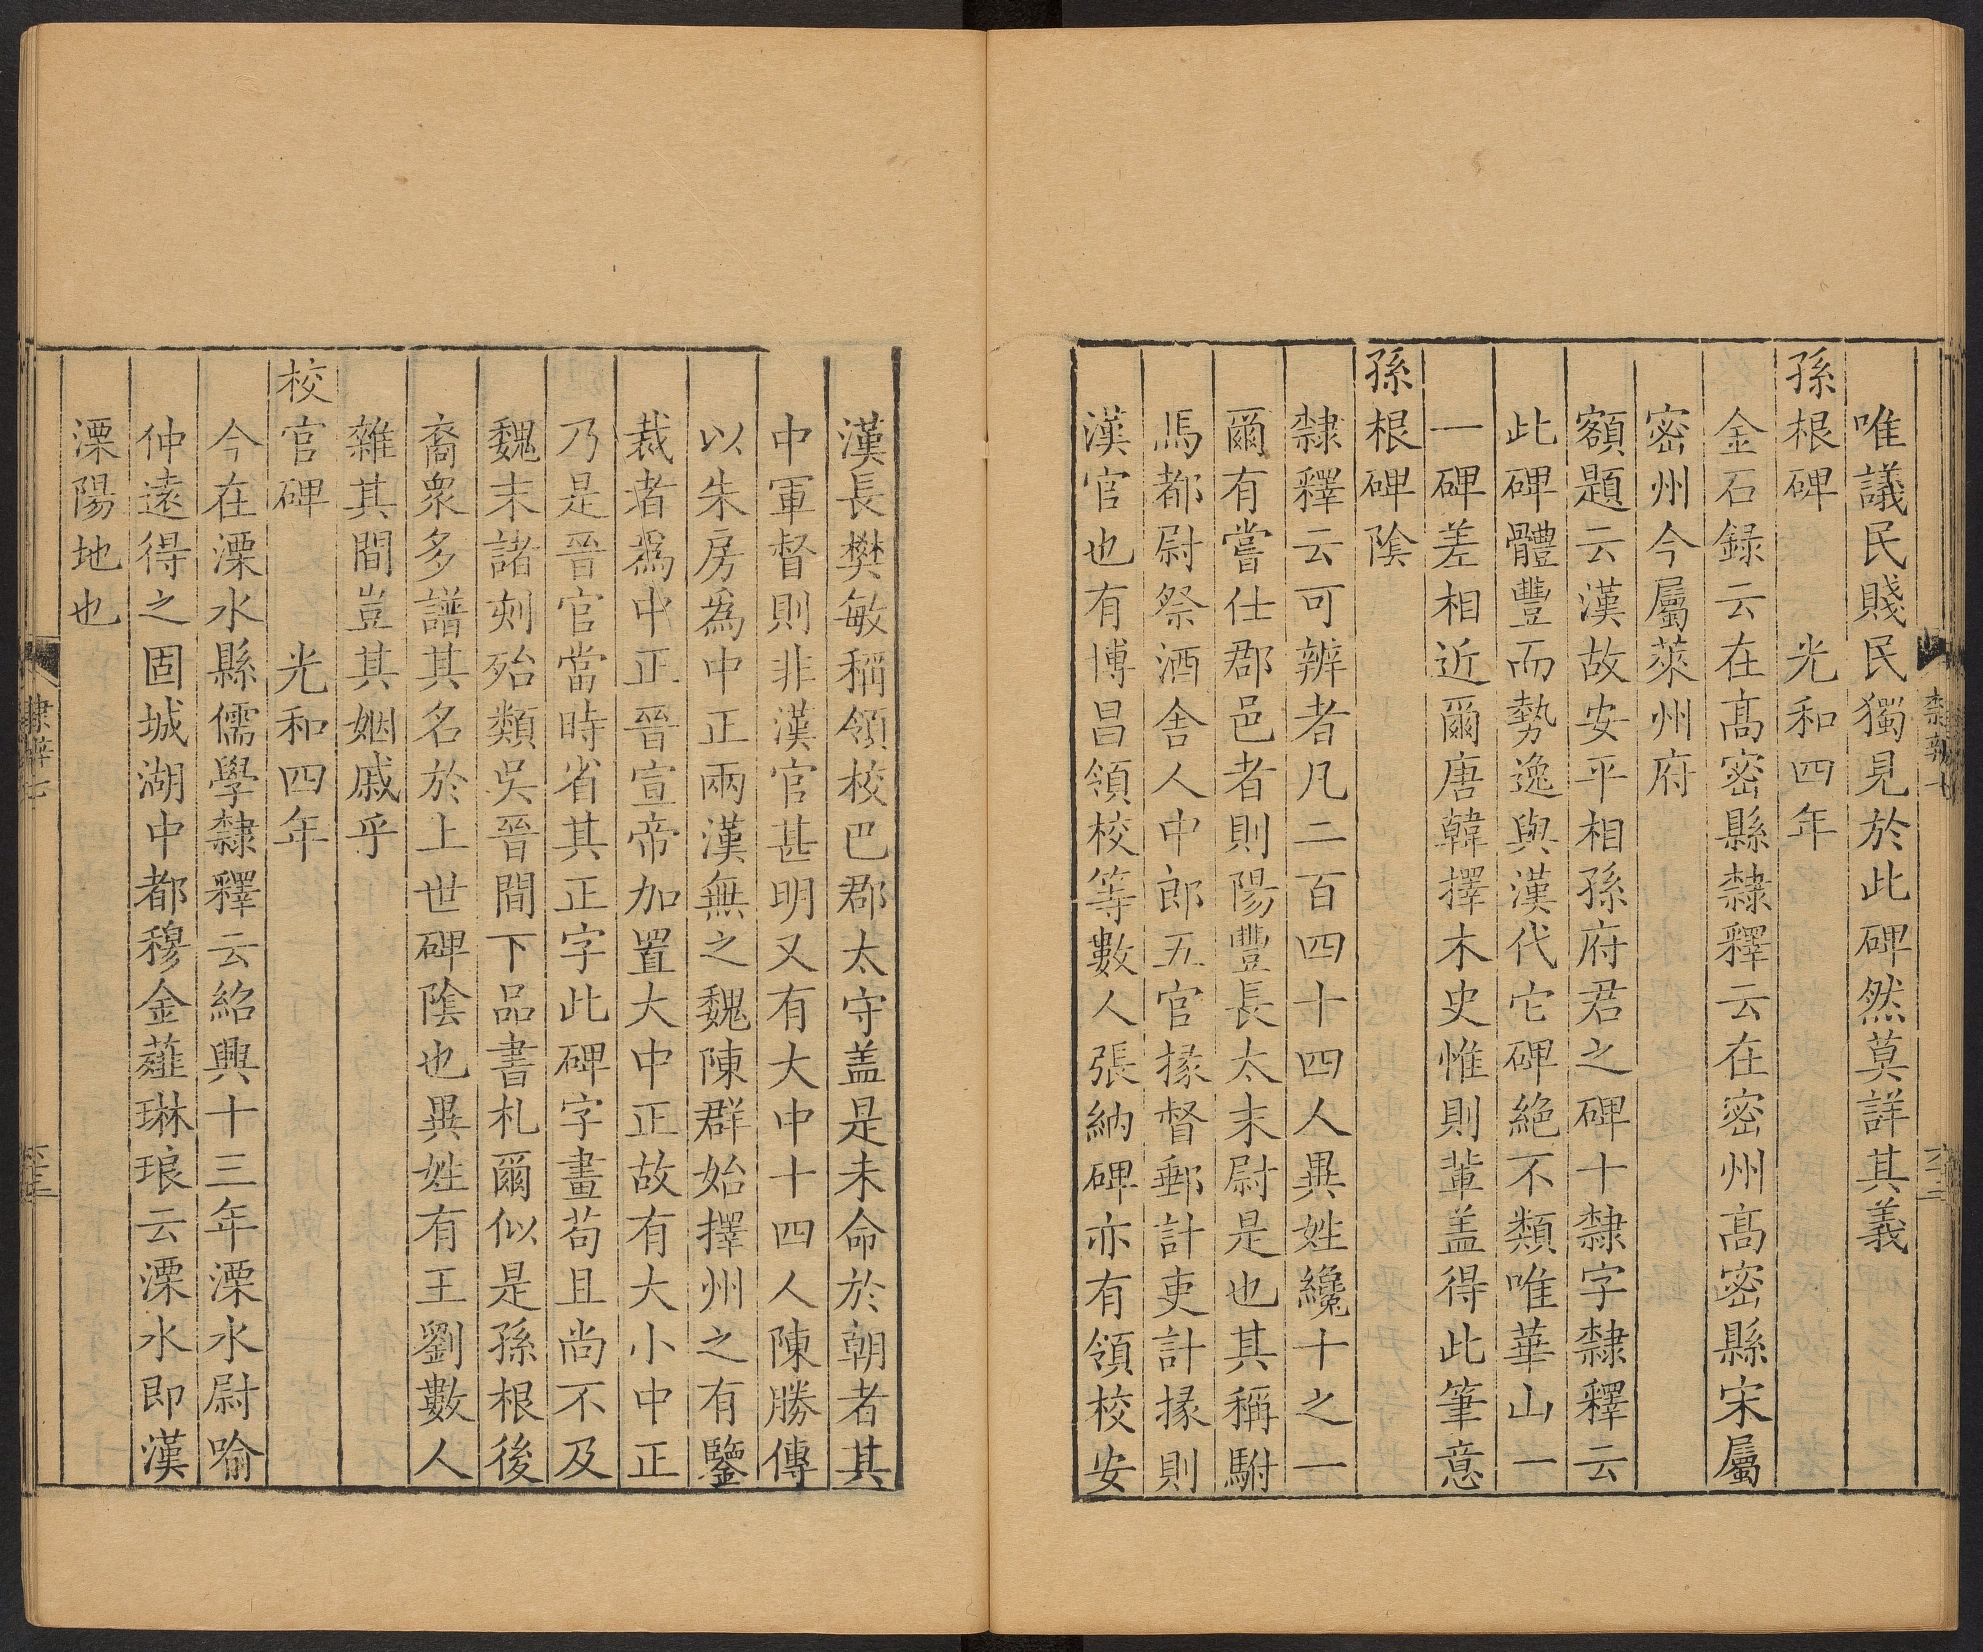 唯議民賤民獨見於此碑然莫詳其義
孫根碑　光和四年
金石録云在髙密縣隸釋云在密州髙密縣宋屬
密州今屬萊州府
額題云漢故安平相孫府君之碑十隸字隸釋云
此碑體豐而勢逸與漢代它碑絶不類唯華山一
一碑差相近爾唐韓擇木史惟則輩盖得此筆意
孫根碑陰
隸釋云可辨者凡二百四十四人異姓纔十之一
爾有嘗仕郡邑者則陽豐長太末尉是也其稱駙
馬都尉祭酒舍人中郎五官掾督郵計吏計掾則
漢官也有博昌領校等數人張納碑亦有領校安
漢長樊敏稱領校巴郡太守盖是未命於朝者其
中軍督則非漢官甚明又有大中十四人陳勝傳
以朱房爲中正兩漢無之魏陳群始擇州之有鑒
裁者爲中正晉宣帝加置大中正故有大小中正
乃是晉官當時省其正字此碑字畫苟且尚不及
魏末諸刻殆類吳晉間下品書札爾似是孫根後
裔衆多譜其名於上世碑陰也異姓有王劉數人
雜其間豈其姻戚乎
校官碑　光和四年
今在溧水縣儒學隸釋云紹興十三年溧水尉喻
仲遠得之固城湖中都穆金薤琳琅云溧水即漢
溧陽地也
隸辨七